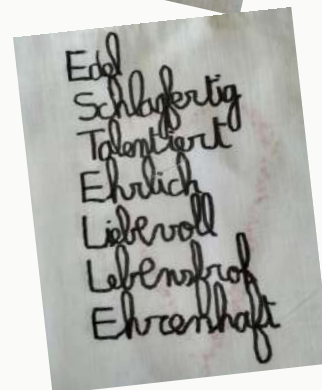 Edel
Schlagfertig
Talentiert
Ehrlich
Liebevoll
Lebensfroh
Ehrenhaft